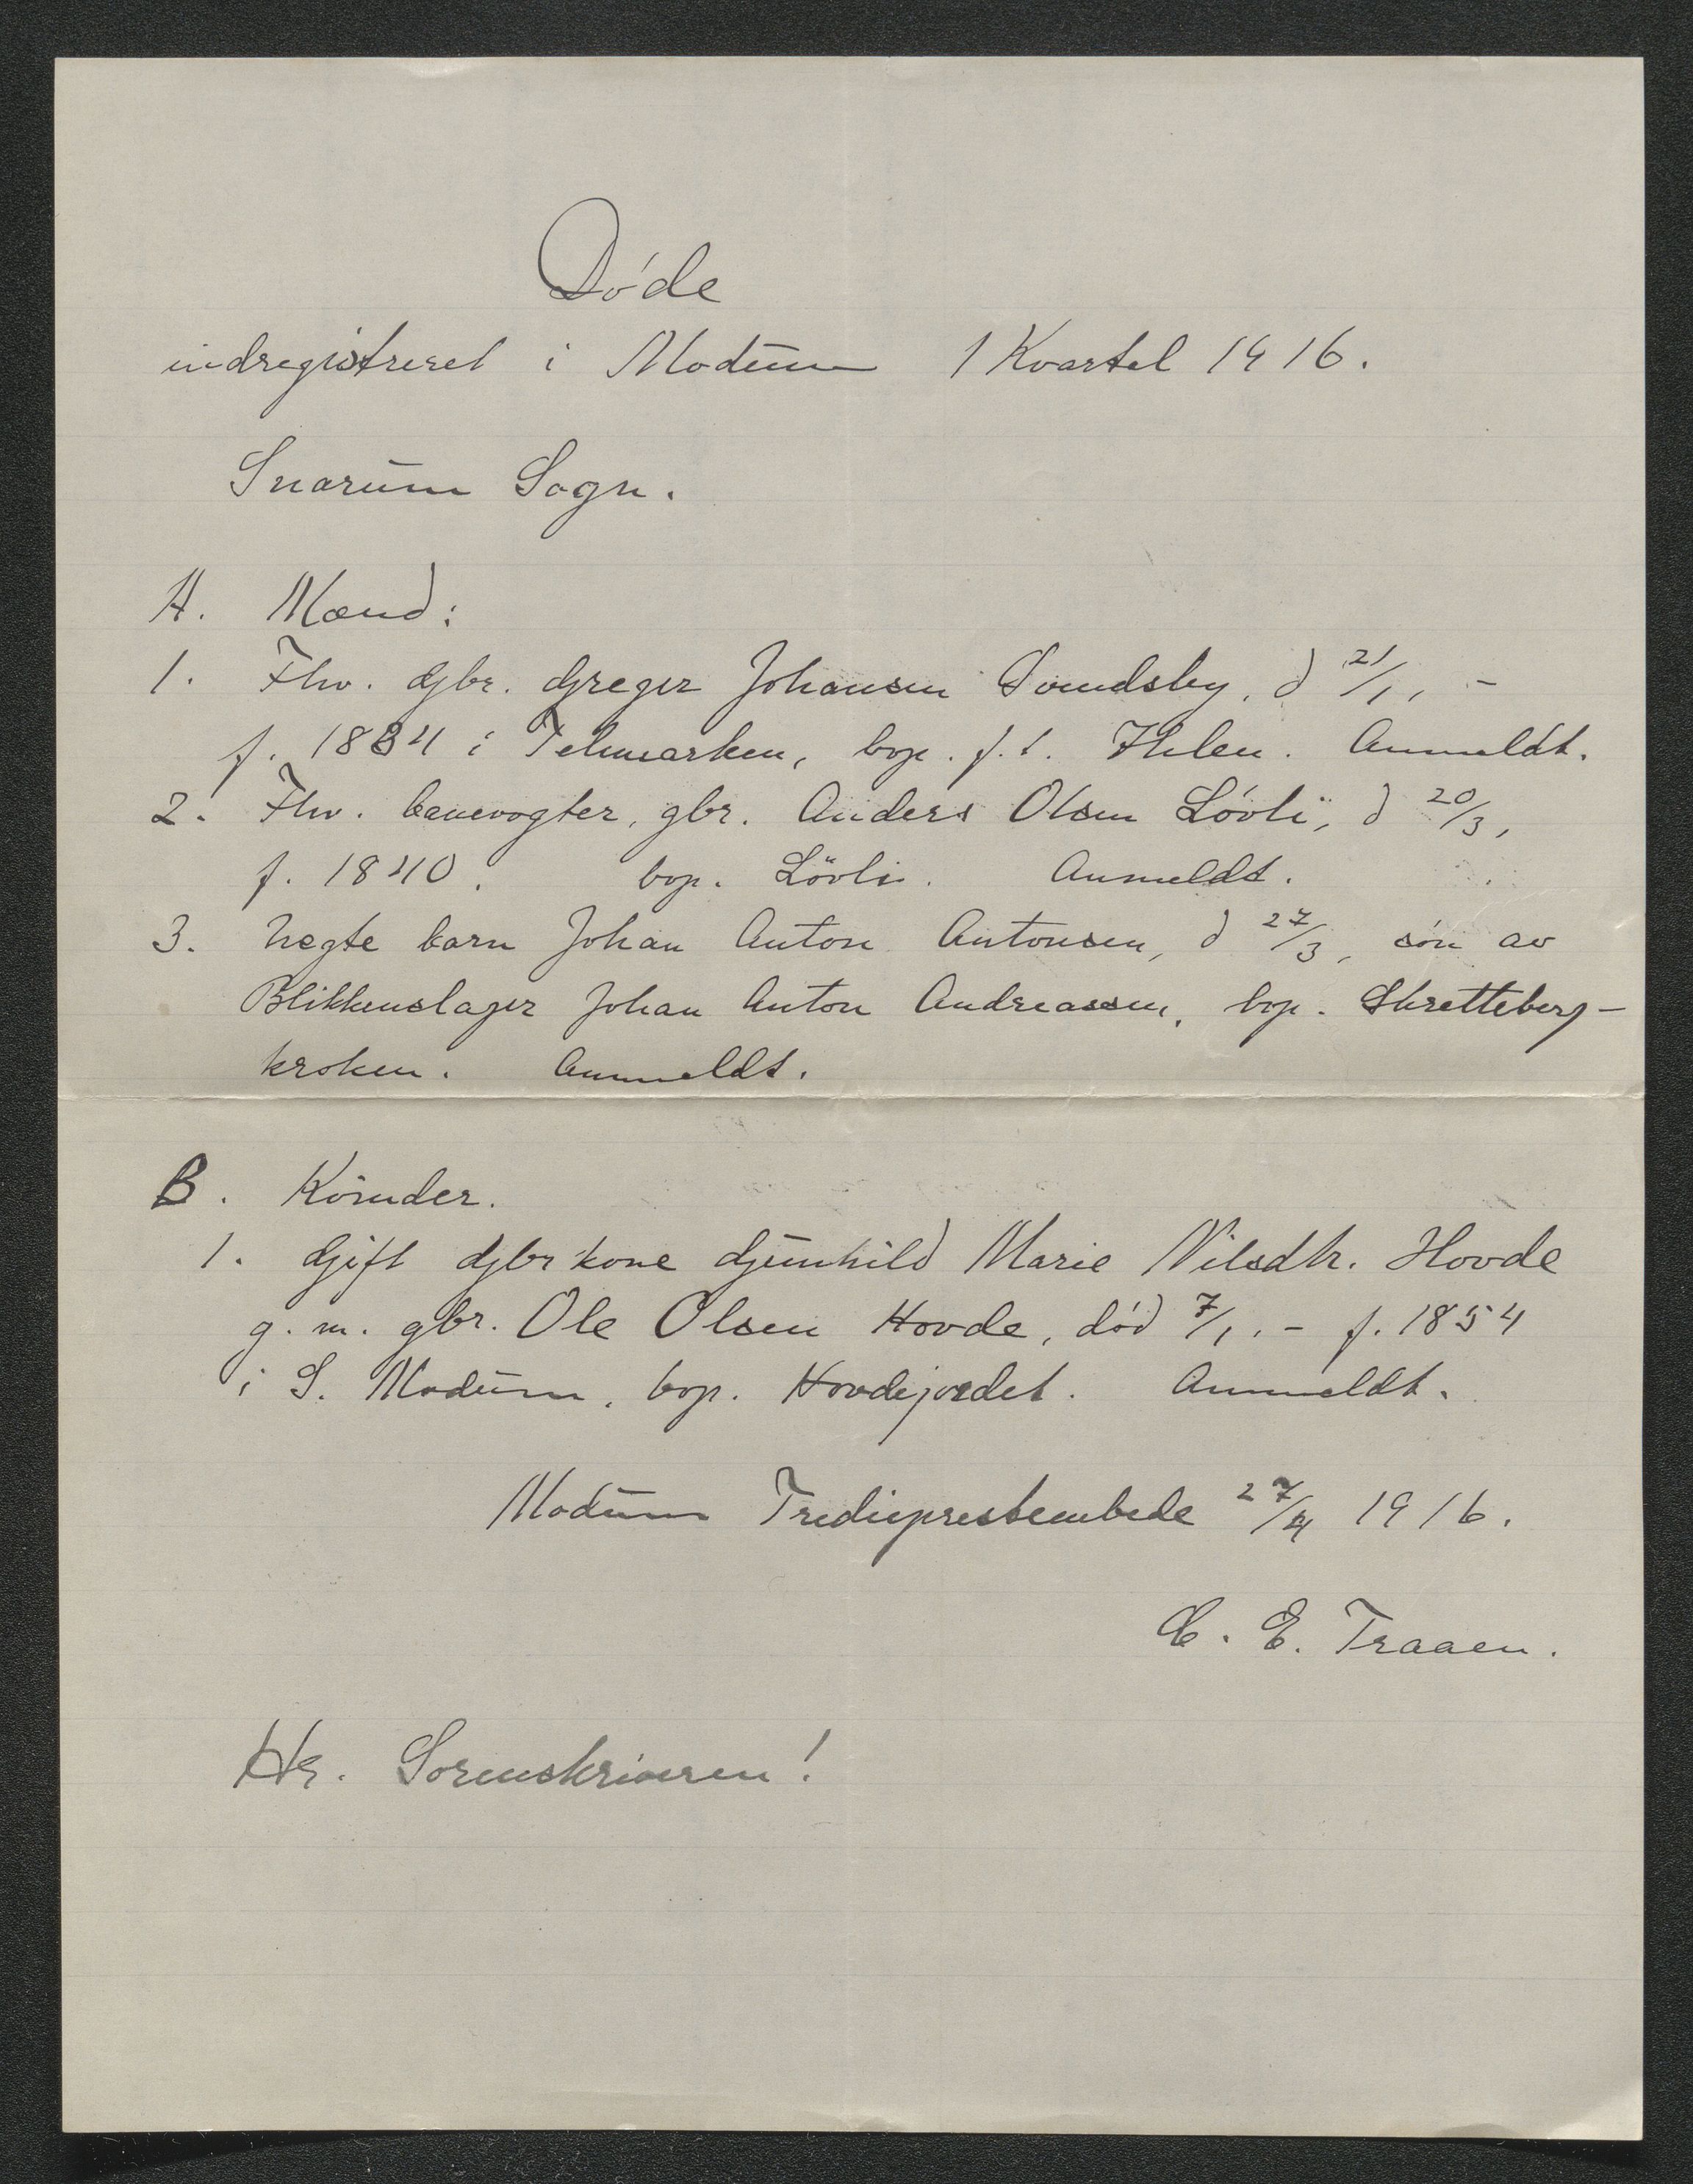 Døde
indregistreret i Modum 1 Kvartal 1916.
Snarum Sogn.
A. Mænd:
1. Fhv. Gbr. Greger Johansen Sundsby, d 21/1, –
f. 1834 i Telemarken, bop. f.t. Ihlen. Anmeldt.
2. Fhv. banevogter, gbr. Anders Olsen Løvli, d 20/3,
f. 1840. bop. Løvli. Anmeldt.
3. Uegte barn Johan Anton Antonsen, d 27/3, søn av
Blikkenslager Johan Anton Andreassen, bop. Skretteberg-
kroken. Anmeldt.
B. Kvinder.
1. Gift Gbr kone Gunhild Marie Nilsdtr. Hovde
g. m. gbr. Ole Olsen Hovde, död 7/1. – f. 1854
i S. Modum, bop. Hovdejordet. Anmeldt.
Modum Tredieprestembede 27/4 1916.
C. E. Traaen.
Hr. Sorenskriveren!